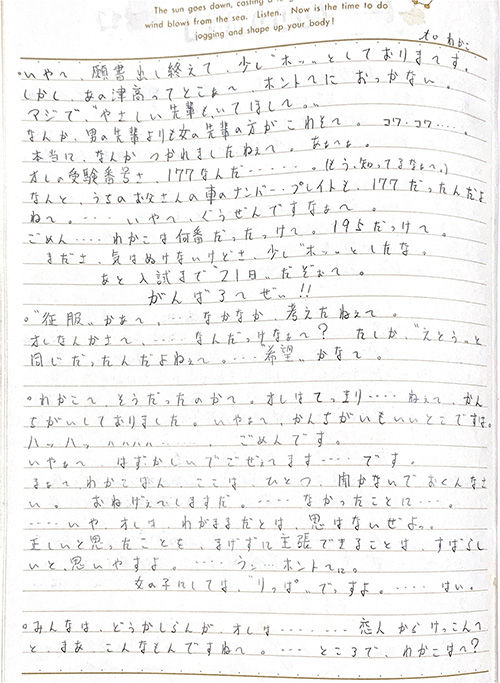 The sun goes down, casting a
wind blows from the sea. Listen. Now is the time to do
jogging and shape up your body!
to わかこ
・いやぁ〜、願書出し終えて、少し"ホッ"としております。
しかし、あの津高ってとこぁ〜、ホントにおっかない。
マジで"やさしい先輩"といてほして。
なんか、男の先輩よりも女の先輩の方がこわそぉ。コワ・コワ・・・・。
本当に、なんかつかれましたねぇ〜。あぁぁぁ。
オレの受験番号さ、177なんだ・・・・・・。(もう、知ってるなぁ〜。)
なんと、うちのお父さんの車のナンバー・プレイトも、177だったんだよ
ね〜。・・・・いやぁ〜、ぐうぜんですなぁ〜。
ごめん・・・・わかこは何番だったっけ〜。195だっけ〜。
まださ、気はぬけないけどさ、少し"ホッ"としたな。
あと入試まで"21日"だぞぉ〜。
がんばろ〜ぜぃ!!
・"征服"かぁ〜、・・・・なかなか、考えたねぇ〜。
オレなんかさ〜、・・・・なんだっけなぁ〜? たしか、"えとう"と
同じだったんだよねぇ〜。・・・"希望"かな〜。
・わかこ〜、そうだったのか〜。オレはてっきり・・・・・ねぇ〜、かん
ちがいしておりました。いやぁ〜、かんちがいもいいとこですね。
ハッハッハハハハ・・・・・・、ごめんです。
いやぁ〜、はずかしいでごぜぇます・・・・です。
まぁ〜、わかこはん、ここは、ひとつ、聞かないでおくんなさ
い。おねげぇでしますだ。・・・・・なかったことに・・・。
・・・・・いや、オレは、わがままだとは、思はないぜよっ。
正しいと思ったことを、まげずに主張できることは、すばらし
いと、思いやすよ。・・・・・うん・・・ホントに。
女の子にしては、"りっぱ"でっすよ。・・・・・はい。
・みんなは、どうかしらんが、オレは・・・・・・・・恋人からけっこんへ
と、まあ、こんなもんですね〜。・・・・ところで、わかこは〜?